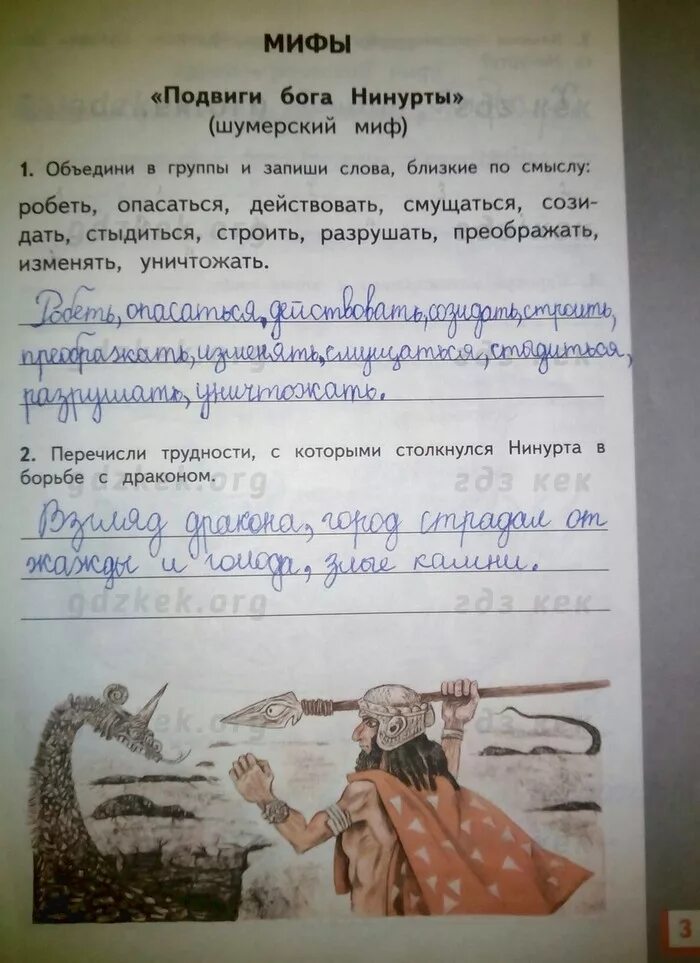 МИФЫ
«Подвиги бога Нинурты»
(шумерский миф)
1. Объедини в группы и запиши слова, близкие по смыслу:
робеть, опасаться, действовать, смущаться, сози-
дать, стыдиться, строить, разрушать, преображать,
изменять, уничтожать.
Робеть, опасаться, действовать, созидать, строить,
преображать, изменять, смущаться, стыдиться,
разрушать, уничтожать.
2. Перечисли трудности, с которыми столкнулся Нинурта в
борьбе с драконом.
gdzkek.org гдз кек
Взгляд дракона, город страдал от
жажды и голода, злые камни.
gdzkek.org гдз кек
3